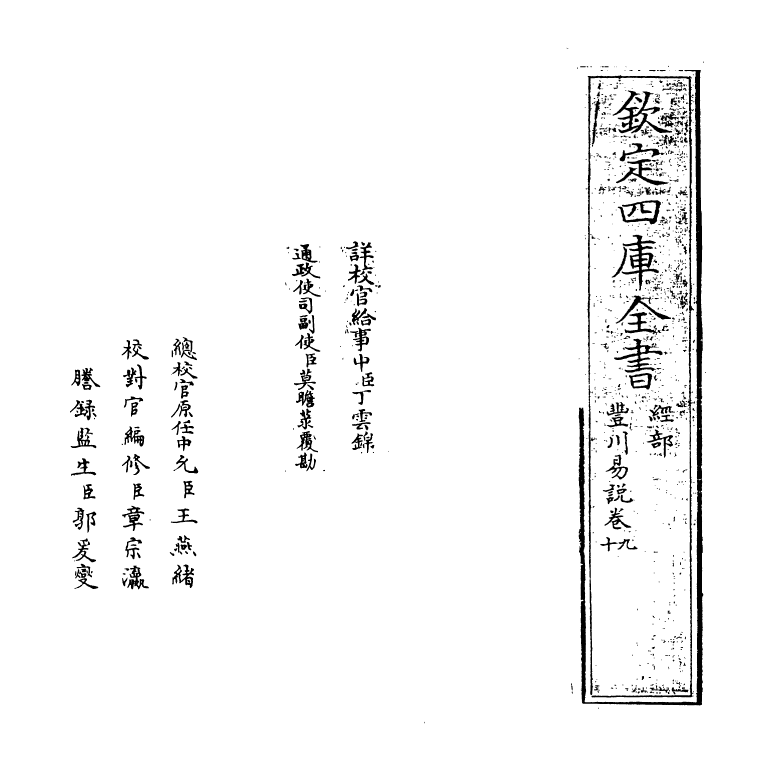 欽定四庫全書
經部
豐川易説卷九十
詳校官給事中臣丁雲錦
通政使司副使臣莫瞻菉覆勘
總校官原任中允臣王燕緒
校對官編修臣章宗瀛
謄録監生臣郭爰燮